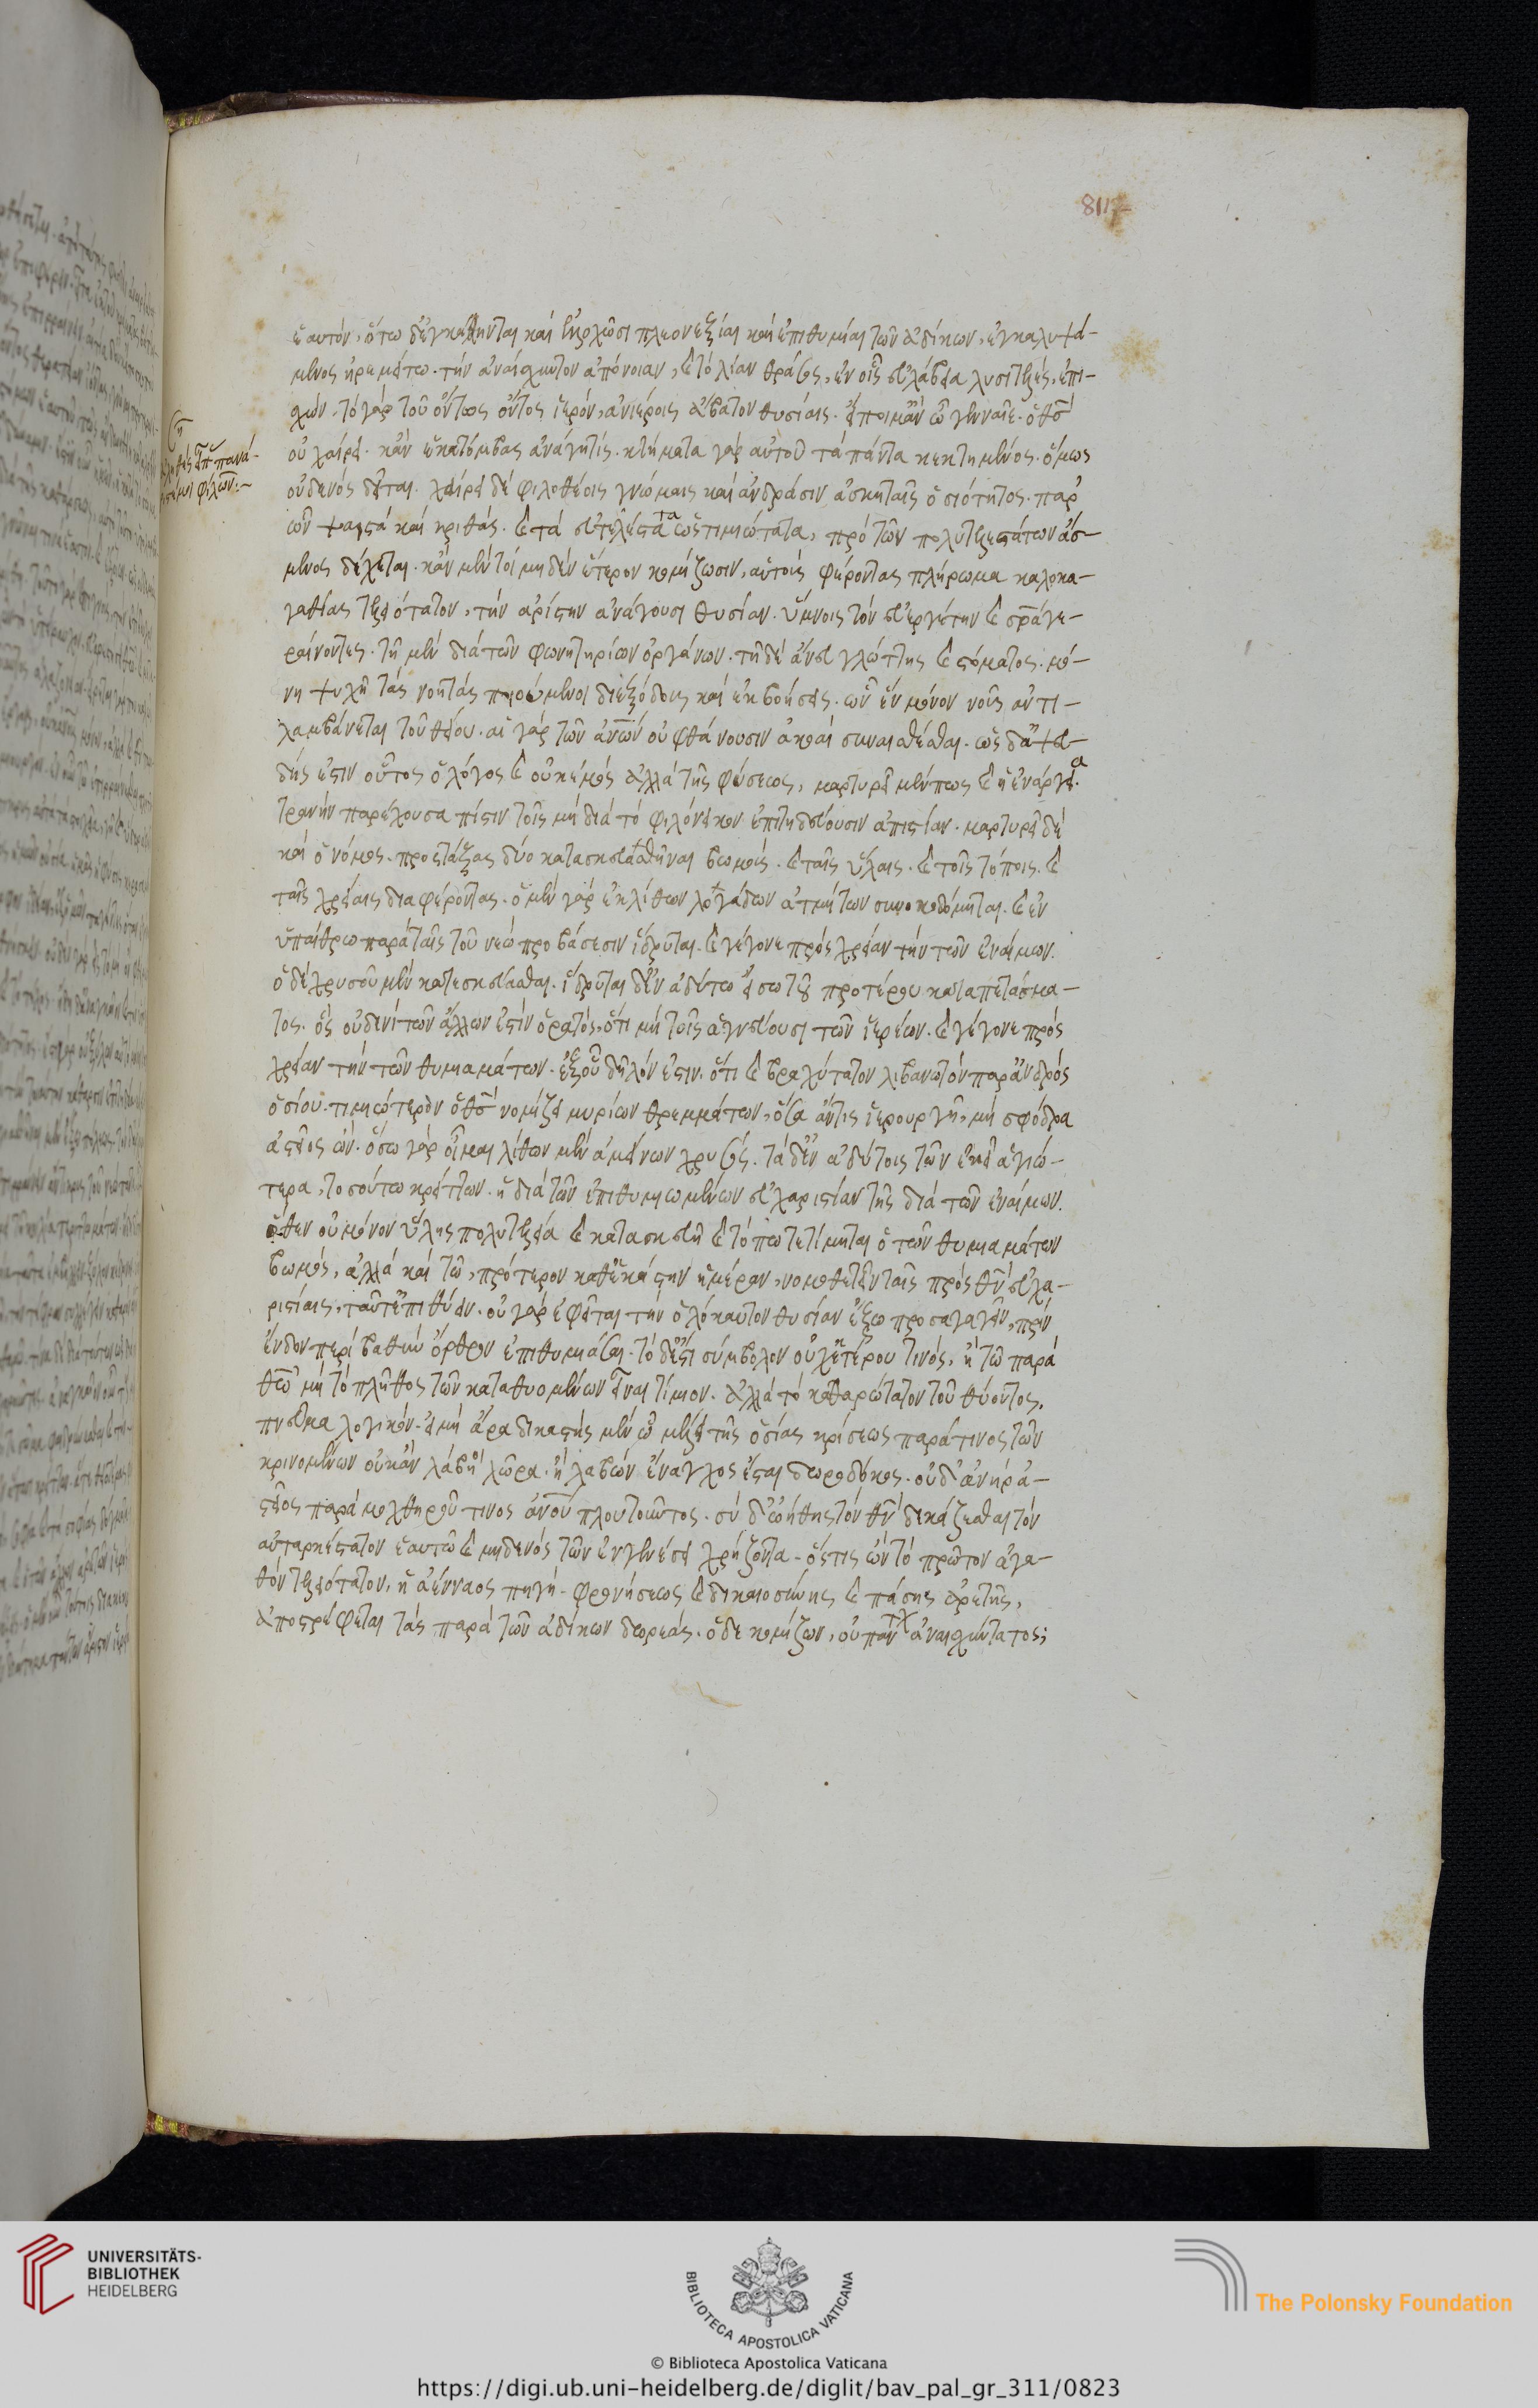 811
ἑαυτόν, ὅτω δ' ἐγκάθηνται καὶ ἐλλοχῶσι πλεονεξίαι καὶ ἐπιθυμίαι τῶν ἀδίκων, ἐγκαλυψά-
μενος ἠρεμείτω. τὴν ἀναίσχυντον ἀπόνοιαν, καὶ τὸ λίαν θράσος, ἐν οἷς εὐλάβεια λυσιτελὲς, ἐπι-
σχών. τὸ γὰρ τοῦ ὄντως ὄντος ἱερόν, ἀνιέροις ἄβατον θυσίαις. εἴποιμ' ἂν ὦ γενναῖε. ὁ θεὸς
οὐ χαίρει. κἂν ἑκατόμβας ἀνάγῃ τίς. κτήματα γὰρ αὐτοῦ τὰ πάντα κεκτημένος. ὅμως
οὐδενὸς δεῖται. χαίρει δὲ φιλοθέοις γνώμαις καὶ ἀνδράσιν ἀσκηταῖς ὁσιότητος. παρ'
ὧν ψαιστὰ καὶ κριθάς. καὶ τὰ εὐτελέστατα ὡς τιμιώτατα, πρὸ τῶν πολυτελεστάτων ἄσ-
μενος δέχεται. κἂν μέντοι μηδὲν ἕτερον κομίζωσιν, αὑτοὺς φέροντας πλήρωμα καλοκα-
γαθίας τελειότατον, τὴν ἀρίστην ἀνάγουσι θυσίαν. ὕμνοις τὸν εὐεργέτην καὶ σρα γε-
ραίροντες. τῇ μὲν διὰ τῶν φωνητηρίων ὀργάνων. τῇ δὲ ἄνευ γλώττης καὶ στόματος. μό-
νῃ ψυχῇ τὰς νοητὰς ποιούμενοι διεξόδους καὶ ἐκβοήσεις. ὧν ἓν μόνον νοῦς ἀντι-
λαμβάνεται τοῦ θείου. αἱ γὰρ τῶν ἀνων οὐ φθάνουσιν ἀκοαὶ συναισθέσθαι. ὡς δ' ἀψευ-
δής ἐστιν οὗτος ὁ λόγος καὶ οὐκ ἐμὸς ἀλλὰ τῆς φύσεως, μαρτυρεῖ μέν πως καὶ ἡ ἐνάργεια
τρανὴν παρέχουσα πίστιν τοῖς μὴ διὰ τὸ φιλόνεικον ἐπιτηδεύουσιν ἀπιστίαν. μαρτυρεῖ δὲ
καὶ ὁ νόμος. προστάξας δύο κατασκευασθῆναι βωμούς. καὶ ταῖς ὕλαις. καὶ τοῖς τόποις. καὶ
ταῖς χρείαις διαφέροντας. ὁ μὲν γὰρ ἐκ λίθων λογάδων ἀτμήτων συνῳκοδόμηται. καὶ ἐν
ὑπαίθρω παρὰ ταῖς τοῦ νεὼ προβάσεσιν ἵδρυται. καὶ γέγονε πρὸς χρείαν τὴν τῶν ἐναίμων.
ὁ δὲ χρυσοῦ μὲν κατεσκεύασται. ἵδρυται δ' ἐν ἀδύτω εἴσω τοῦ προτέρου καταπετάσμα-
τος. ὃς οὐδενὶ τῶν ἄλλων ἐστὶν ὁρατός, ὅτι μὴ τοῖς ἁγνεύουσι τῶν ἱερέων. καὶ γέγονε πρὸς
χρείαν τὴν τῶν θυμιαμάτων. ἐξ οὗ δῆλόν ἐστιν. ὅτι καὶ βραχύτατον λιβανωτὸν παρ' ἀνδρὸς
ὁσίου. τιμιώτερον ὁ θεὸς νομίζει μυρίων θρεμμάτων, ὅσα ἄν τις ἱερουργῇ, μὴ σφόδρα
ἀστεῖος ὤν. ὅσω γὰρ οἶμαι λίθων μὲν ἀμείνων χρυσός. τὰ δ' ἐν ἀδύτοις τῶν ἐκεῖ ἁγιώ-
τερα, τοσούτω κρείττων. ἡ διὰ τῶν ἐπιθυμιωμένων εὐχαριστίαν τῆς διὰ τῶν ἐναίμων.
ὅθεν οὐ μόνον ὕλης πολυτελεία καὶ κατασκευῇ καὶ τόπω τετίμηται ὁ τῶν θυμιαμάτων
βωμὸς, ἀλλὰ καὶ τῶ, πρότερον καθ' ἑκάστην ἡμέραν, νομοθετεῖν ταῖς πρὸς θν εὐχα-
ριστίαις, ταῦτ' ἐπιθύειν. οὐ γὰρ ἐφεῖται τὴν ὁλόκαυτον θυσίαν ἔξω προσαγαγεῖν, πρὶν
ἔνδον περὶ βαθὺν ὄρθρον ἐπιθυμιάσαι. τὸ δ' ἐστι σύμβολον οὐχ ἑτέρου τινός, ἢ τῶ παρὰ
θεῶ μὴ τὸ πλῆθος τῶν καταθυομένων εἶναι τίμιον. ἀλλὰ τὸ καθαρώτατον τοῦ θύοντος,
πνεῦμα λογικόν. εἰ μὴ ἄρα δικαστὴς μὲν ὦ μέλει τῆς ὁσίας κρίσεως παρά τινος τῶν
κρινομένων οὐκ ἂν λάβοι δῶρα. ἢ λαβὼν ἔναγχος ἔσται δωροδόκος. οὐδ' ἀνὴρ ἀ-
στεῖος παρὰ μοχθηροῦ τινος ἀνου πλουτοῦντος. σὺ δ' ᾠήθης τὸν θν δεκάζεσθαι τὸν
αὐταρκέστατον ἑαυτῶ καὶ μηδενὸς τῶν ἐν γενέσει χρήζοντα. ὅστις ὢν τὸ πρῶτον ἀγα-
θὸν τελειότατον, ἡ ἀένναος πηγὴ. φρονήσεως καὶ δικαιοσύνης καὶ πάσης ἀρετῆς,
ἀποστρέφεται τὰς παρὰ τῶν ἀδίκων δωρεάς. ὁ δὲ κομίζων, οὐ πάντ' ἀναισχύντατος;
UNIVERSITÄTS-
BIBLIOTHEK
HEIDELBERG
BIBLIOTECA APOSTOLICA VATICANA
The Polonsky Foundation
© Biblioteca Apostolica Vaticana
https://digi.ub.uni-heidelberg.de/diglit/bav_pal_gr_311/0823